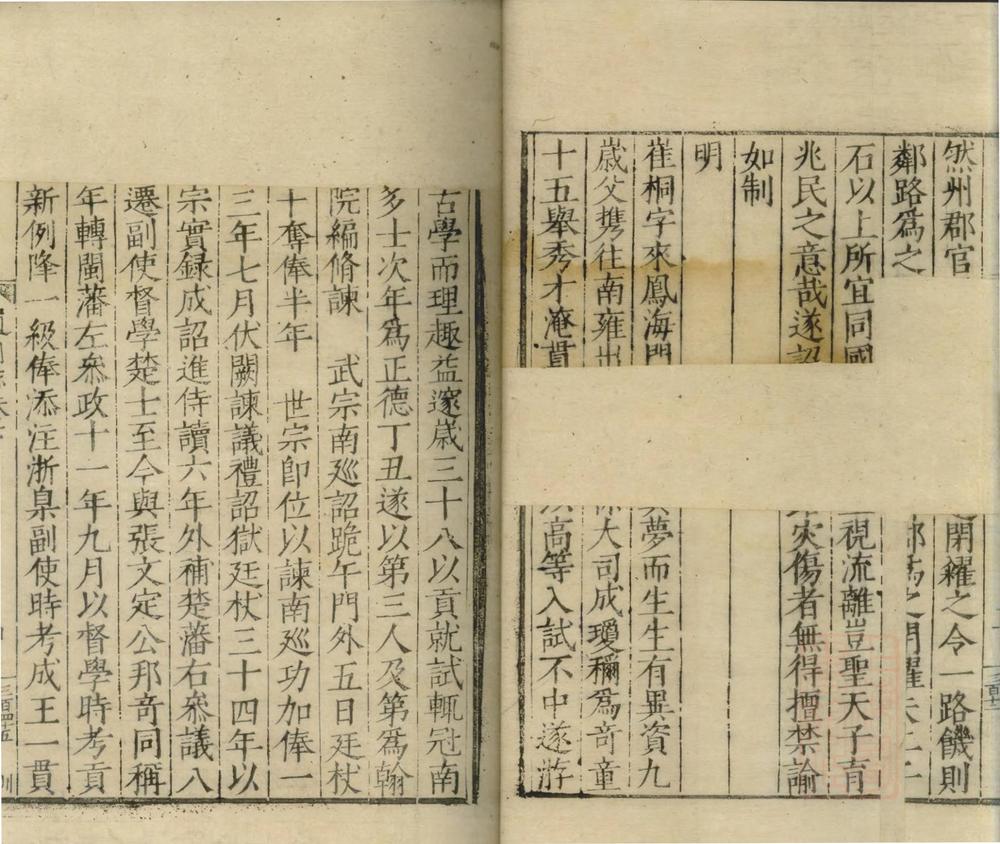 然州郡官閉糴之令一路饑則
鄰路爲之
石以上所宜同國視流離豈聖天子育
兆民之意哉遂詔災傷者無得擅禁諭
如制
明
崔桐字來鳳海門夢而生生有異資九
歲父携往南雍大司成瓊穪爲奇童
十五舉秀才淹貫以高等入試不中遂游
古學而理趣益邃歲三十八以貢就試輒冠南
多士次年爲正德丁丑遂以第三人及第爲翰
院編脩諫 武宗南廵詔跪午門外五日廷杖
十奪俸半年 世宗即位以諫南廵功加俸一
三年七月伏闕諫議禮詔獄廷杖三十四年以
宗實録成詔進侍讀六年外補楚藩右叅議八
遷副使督學楚士至今與張文定公邦奇同稱
年轉閩藩左叅政十一年九月以督學時考貢
新例降一級俸添注浙臬副使時考成王一貫